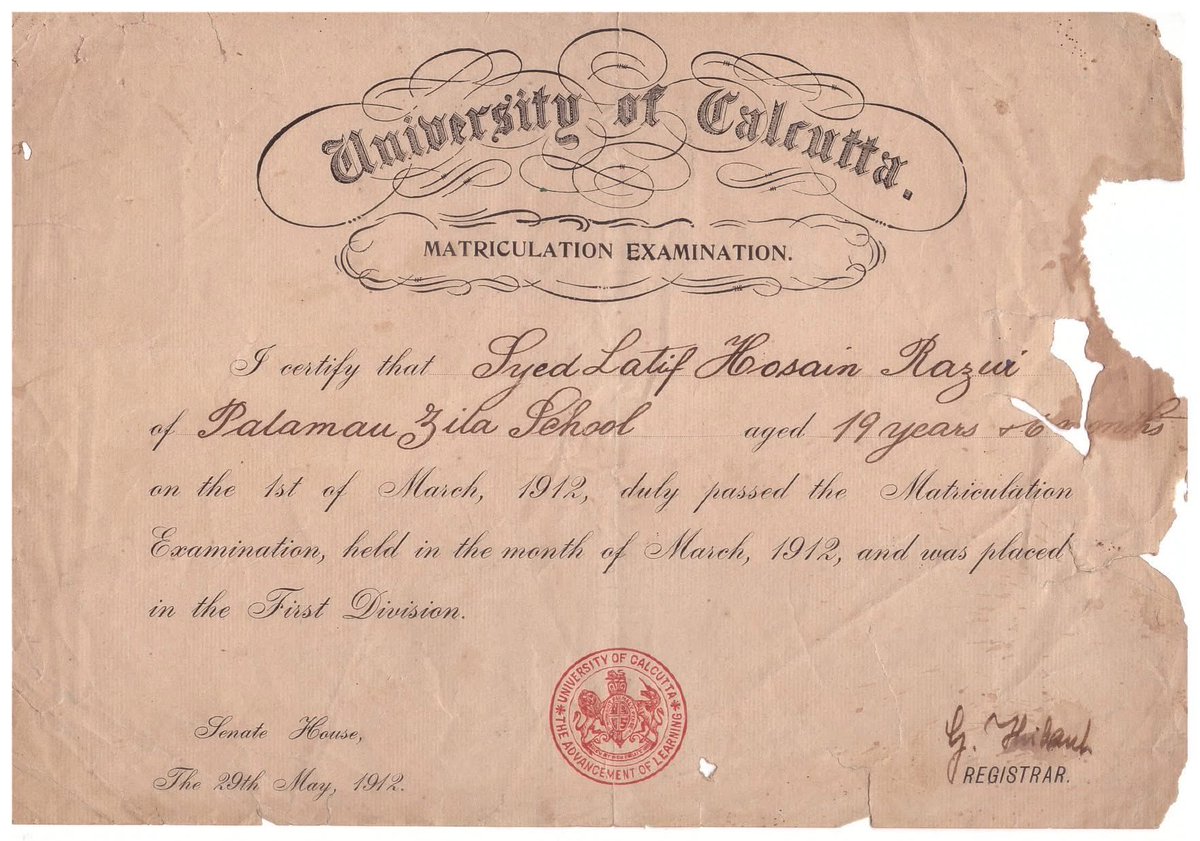 University of Calcutta.
MATRICULATION EXAMINATION.
I certify that Syed Latif Hosain Razwi
of Palamau Zila School aged 19 years & 6 months
on the 1st of March, 1912, duly passed the Matriculation
Examination, held in the month of March, 1912, and was placed
in the First Division.
UNIVERSITY OF CALCUTTA
THE ADVANCEMENT OF LEARNING
Senate House,
The 29th May, 1912.
G. Thibaut
REGISTRAR.